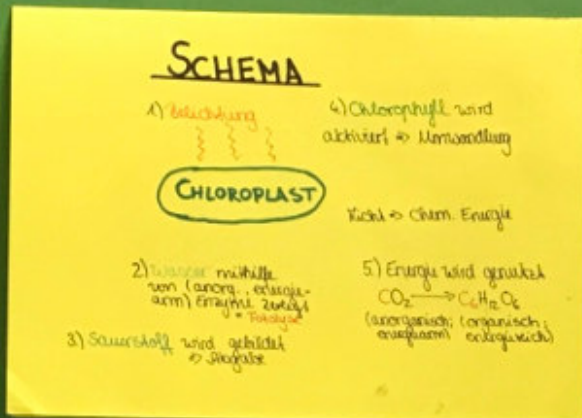 SCHEMA
1) Belichtung
CHLOROPLAST
2) Wasser mithilfe
von (anorg., energie-
arm) Enzyme zerlegt
= Fotolyse
3) Sauerstoff wird gebildet
⇒ Abgabe
4) Chlorophyll wird
aktiviert ⇒ Umwandlung
Licht ⇒ Chem. Energie
5) Energie wird genutzt
CO₂ → C₆H₁₂O₆
(anorganisch; (organisch;
energiearm) energiereich)